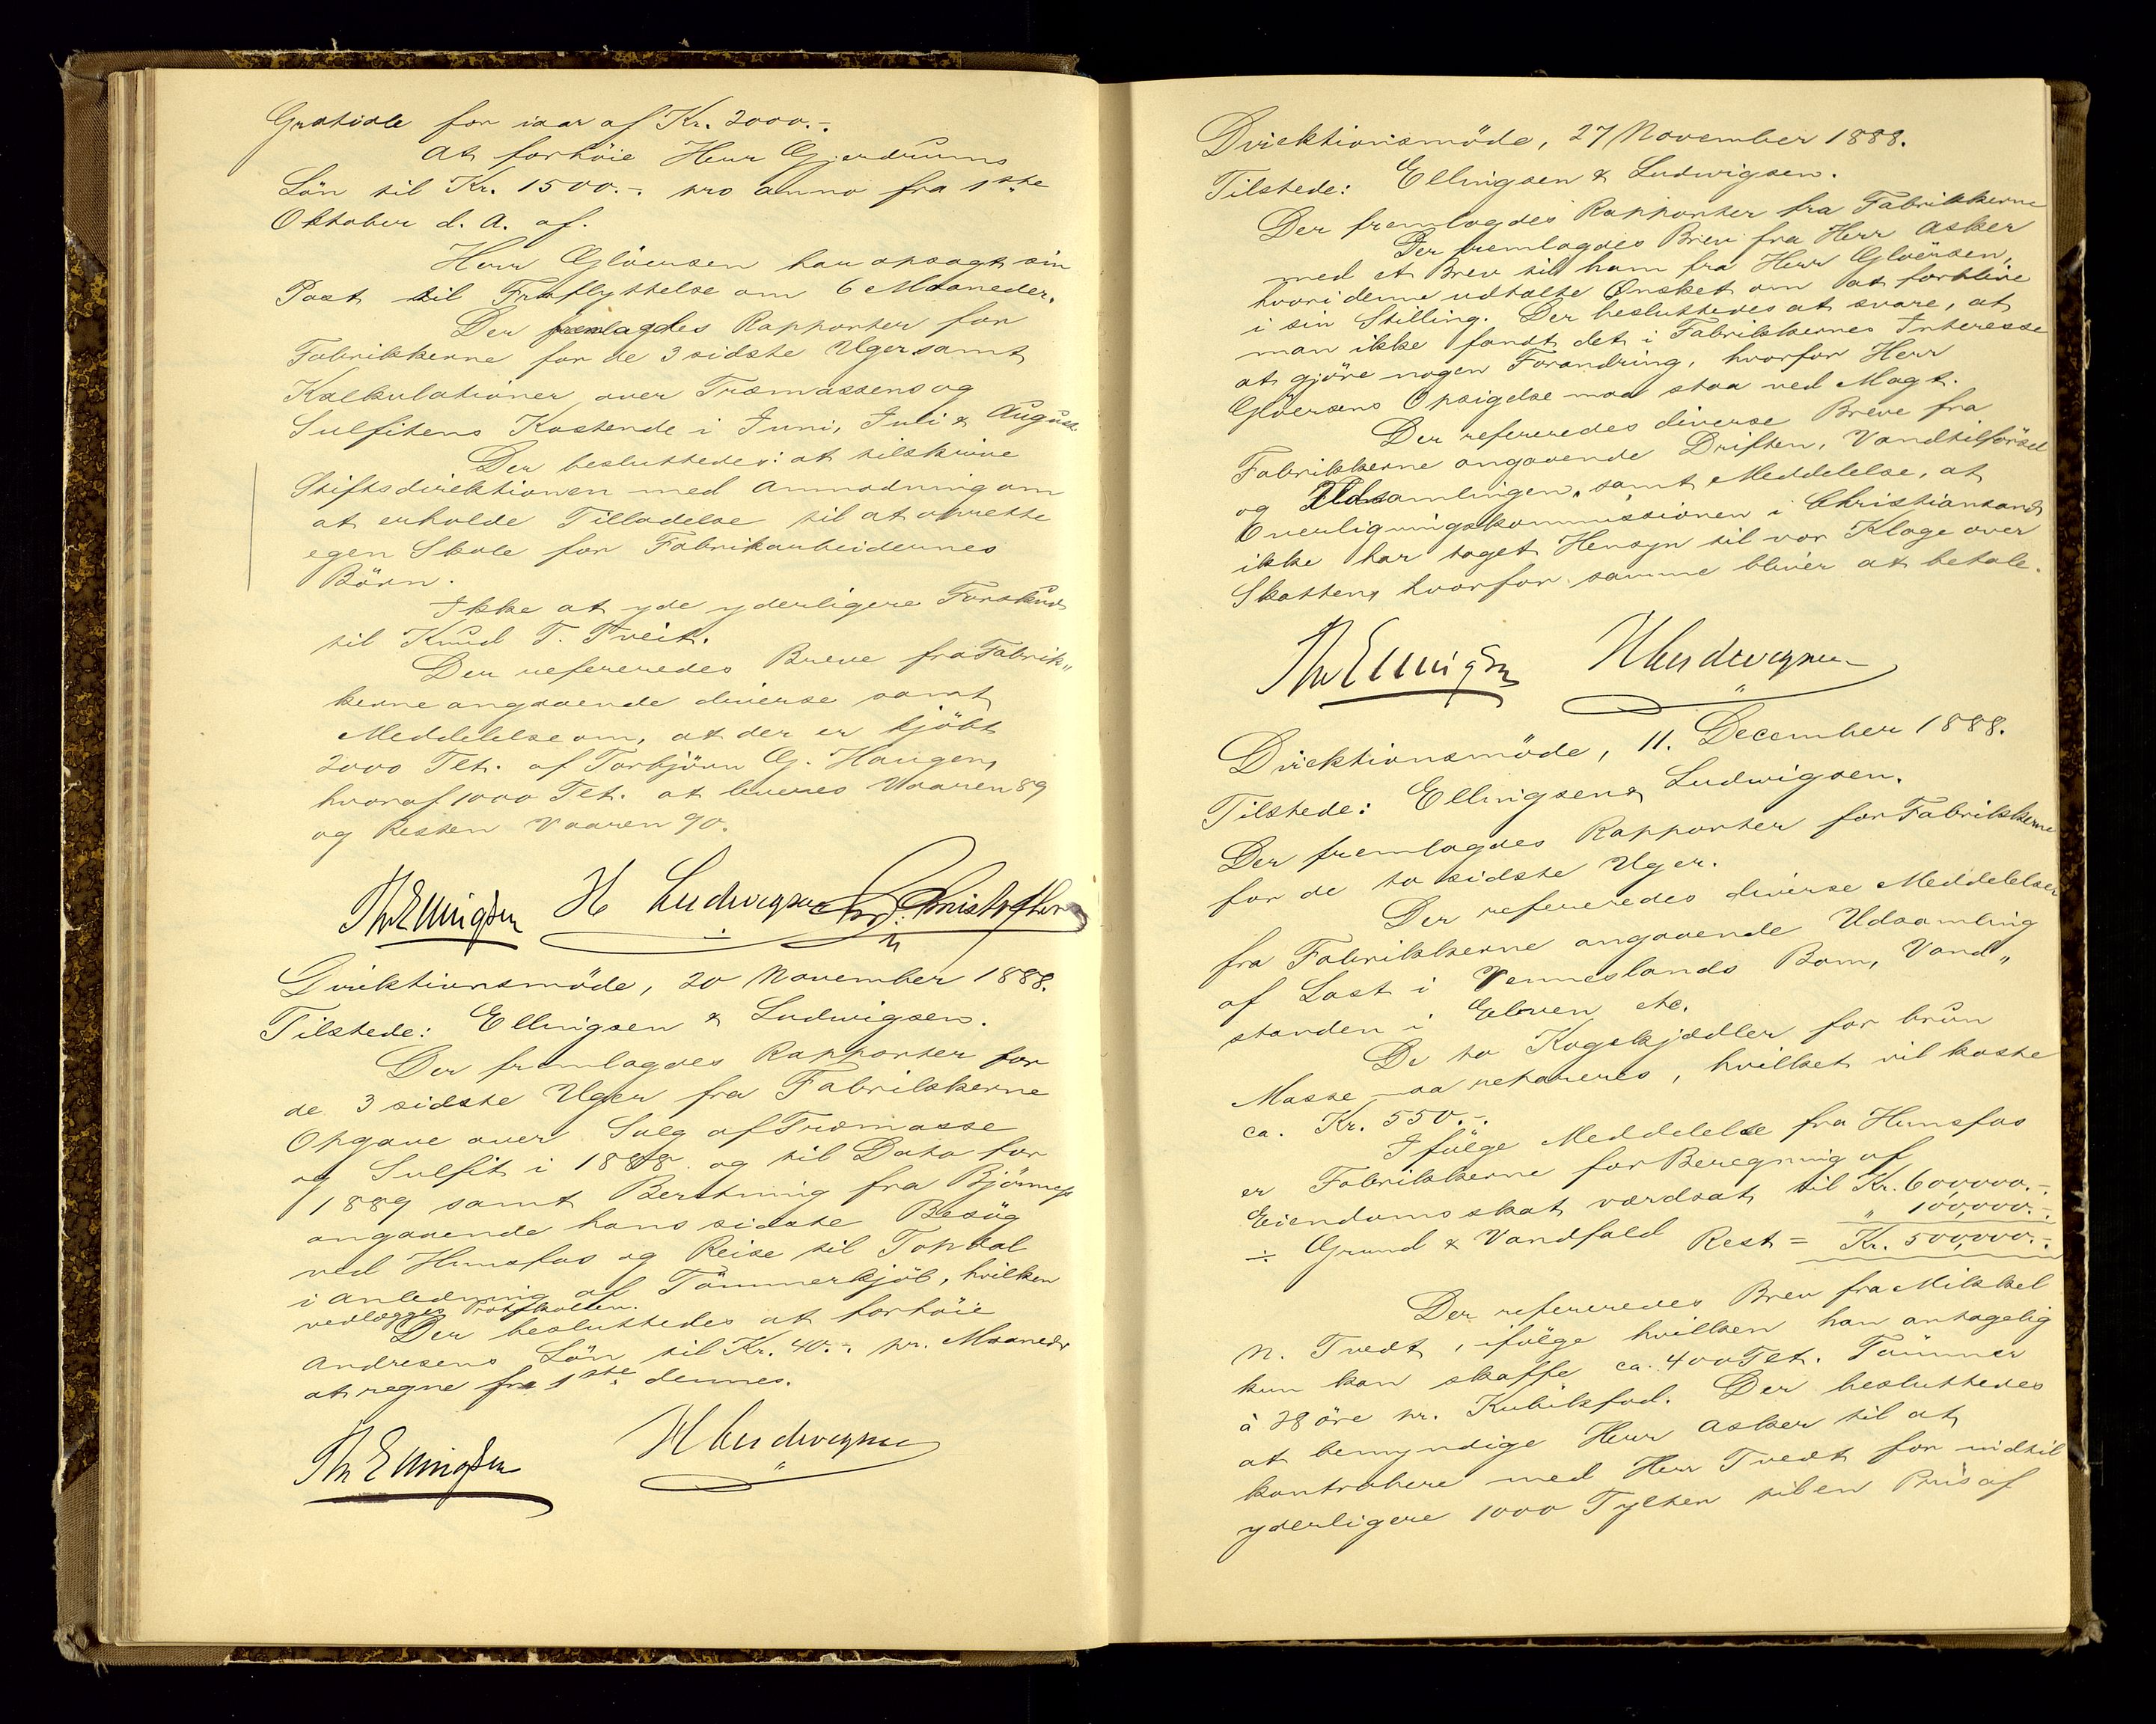 Gratiale for iaar af Kr. 2000.-.
At forhöie Herr Gjerdrums
Lön til Kr. 1500.-. pro anno fra 1ste
Oktober d. A. af.
Herr Glöersen har opsagt sin
Post til Fraflyttelse om 6 Maaneder.
Der fremlagdes Rapporter for
Fabrikkerne for de 3 sidste Uger samt
Kalkulationer over Træmassens og
Sulfitens Kostende i Juni, Juli & August
Der besluttedes: at tilskrive
Stiftsdirektionen med Anmodning om
at erholde Tilladelse til at oprette
egen Skole for Fabrikarbeidernes
Börn.
Ikke at yde yderligere Forskud
til Knud T. Tveit.
Der refereredes Breve fra Fabrik„
kerne angaaende diverse samt
Meddelelse om, at der er kjöbt
2000 Tlt. af Torbjörn G. Haugen,
hvoraf 1000 Tlt. at leveres Vaaren 89
og Resten Vaaren 90.
Th Ellingsen H Ludwigsen Chr. Christophersen
Direktionsmöde, 20 November 1888.
Tilstede: Ellingsen & Ludwigsen.
Der fremlagdes Rapporter for
de 3 sidste Uger fra Fabrikkerne
Opgave over Salg af Træmasse
og Sulfit i 1888 og til Dato for
1889 samt Beretning fra Björnnes
angaaende hans sidste Besög
ved Hunsfos og Reise til Topdal
i Anledning af Tömmerkjöb, hvilken
vedlægges Protokollen.
Der besluttedes at forhöie
Andresens Lön til Kr. 40.-. pr. Maaned
at regne fra 1ste dennes.
Th Ellingsen H Ludwigsen
Direktionsmöde, 27 November 1888.
Tilstede: Ellingsen & Ludwigsen.
Der fremlagdes Rapporter fra Fabrikkerne
Der fremlagdes Brev fra Herr Asker
med et Brev til ham fra Herr Glöersen,
hvori denne udtalte Ønsket om at forblive
i sin Stilling. Der besluttedes at svare, at
man ikke fandt det i Fabrikkernes Interesse
at gjöre nogen Forandring, hvorfor Herr
Glöersens Opsigelse maa staa ved Magt.
Der refereredes diverse Breve fra
Fabrikkerne angaaende Driften, Vandtilförsel
og Udsamlingen, samt Meddelelse, at
Overligningskommissionen i Christiansand
ikke har taget Hensyn til vor Klage over
Skatten, hvorfor samme bliver at betale.
Th Ellingsen H Ludwigsen
Direktionsmöde, 11. December 1888.
Tilstede: Ellingsen & Ludwigsen.
Der fremlagdes Rapporter for Fabrikkerne
for de to sidste Uger.
Der refereredes diverse Meddelelser
fra Fabrikkerne angaaende Udsamling
af Last i Venneslands Bom, Vand„
standen i Elven etc.
De to Kogekjædler for brun
Masse maa repareres, hvilket vil koste
ca. Kr. 550.-.
Ifölge Meddelelse fra Hunsfos
er Fabrikkerne for Beregning af
Eiendomsskat værdsat til Kr. 600,000.-.
÷ Grund & Vandfald „ 100,000.-.
Rest = Kr. 500,000.-.
Der refereredes Brev fra Mikkel
N. Tvedt, ifölge hvilken han antagelig
kun kan skaffe ca. 400 Tlt. Tömmer
à 28 öre pr. Kubikfod. Der besluttedes
at bemyndige Herr Asker til at
kontrahere med Herr Tvedt for indtil
yderligere 1000 Tylter til en Pris af